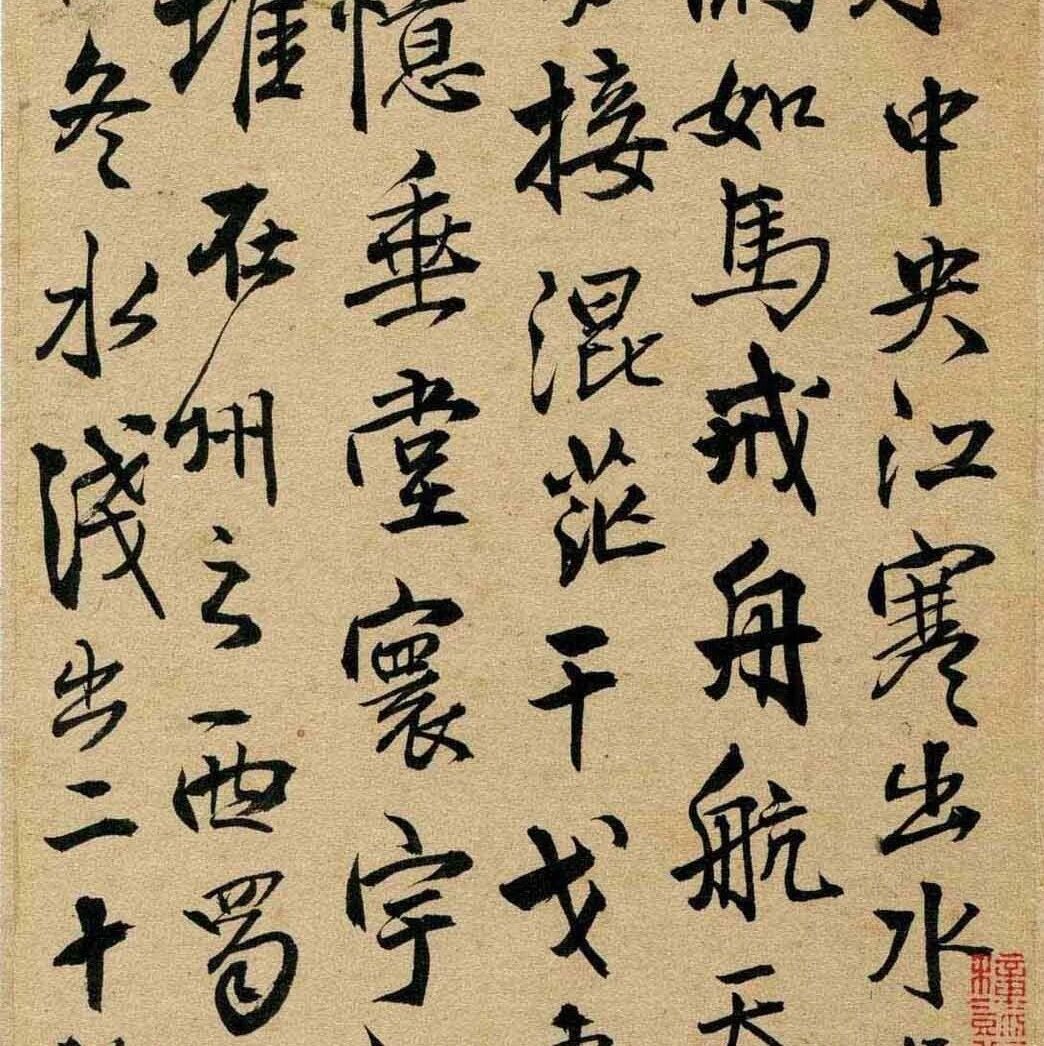 中央江寒出水
如馬戒舟航天
接混茫干戈
憶垂堂寰宇
堆在州之西蜀
冬水淺出二十